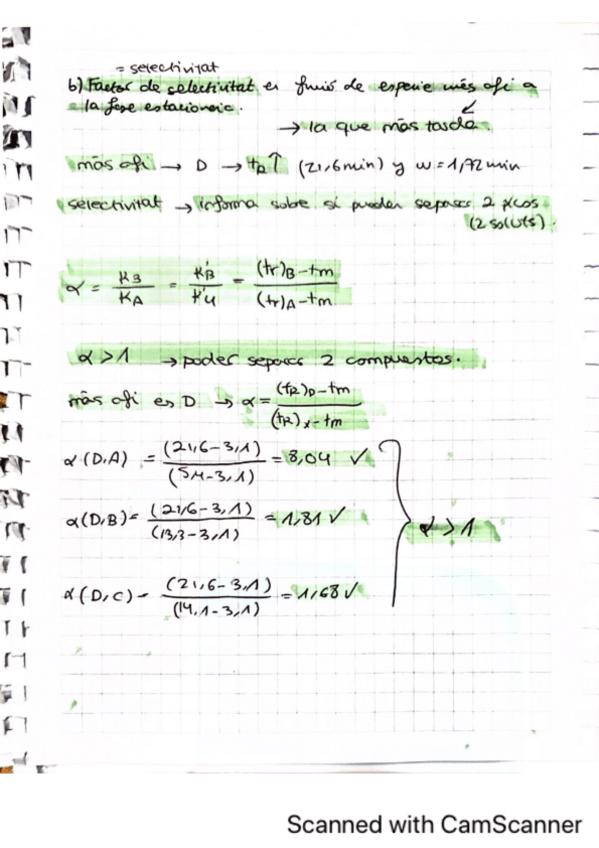 = selectivitat
b) Factor de selectivitat en funió de especie més afi a
la fase estacionaria.
→ la que más tarda.
más afi → D → tR↑ (21,6 min) y w = 1,72 min
selectivitat → informa sobre si pueden separar 2 picos
(2 soluts).
α = KB/KA = K'B/K'A = ((tr)B-tm)/((tr)A-tm)
α > 1 → poder separar 2 compuestos.
más afi es D → α = ((tR)D-tm)/((tR)x-tm)
α (D,A) = (21,6-3,1)/(5,4-3,1) = 8,04 ✓
α (D,B) = (21,6-3,1)/(13,3-3,1) = 1,81 ✓
α > 1
α (D,C) - (21,6-3,1)/(14,1-3,1) = 1,68 ✓
Scanned with CamScanner